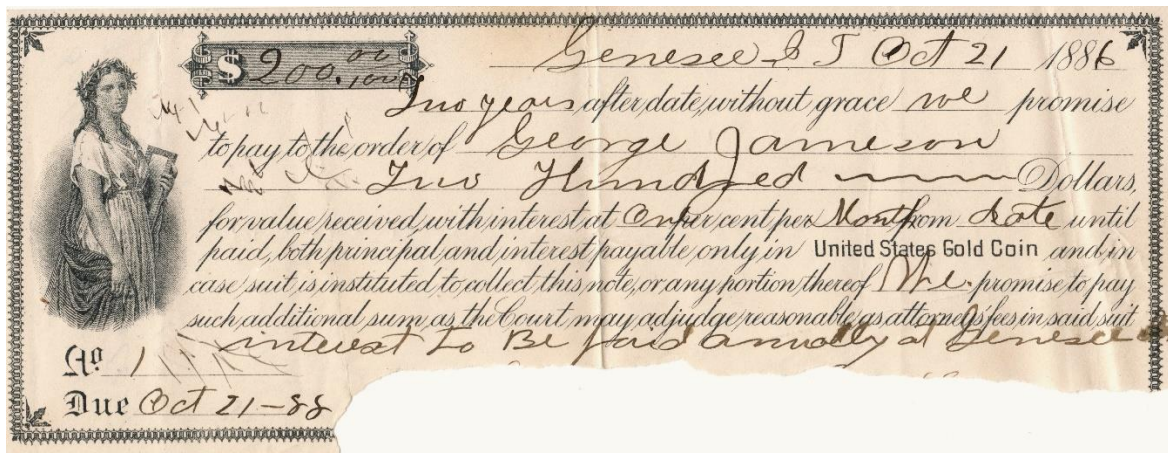 $ 200.00/100
Genesee I T Oct 21 1886
Two years after date, without grace we promise
to pay to the order of George Jameson
Two Hundred Dollars,
for value received, with interest at One per cent per Month from date until
paid, both principal and interest payable only in United States Gold Coin and in
case suit is instituted to collect this note, or any portion thereof We promise to pay
such additional sum as the Court may adjudge reasonable as attorney's fees in said suit
interest to Be paid annually at Genesee
No 1
Due Oct 21-88